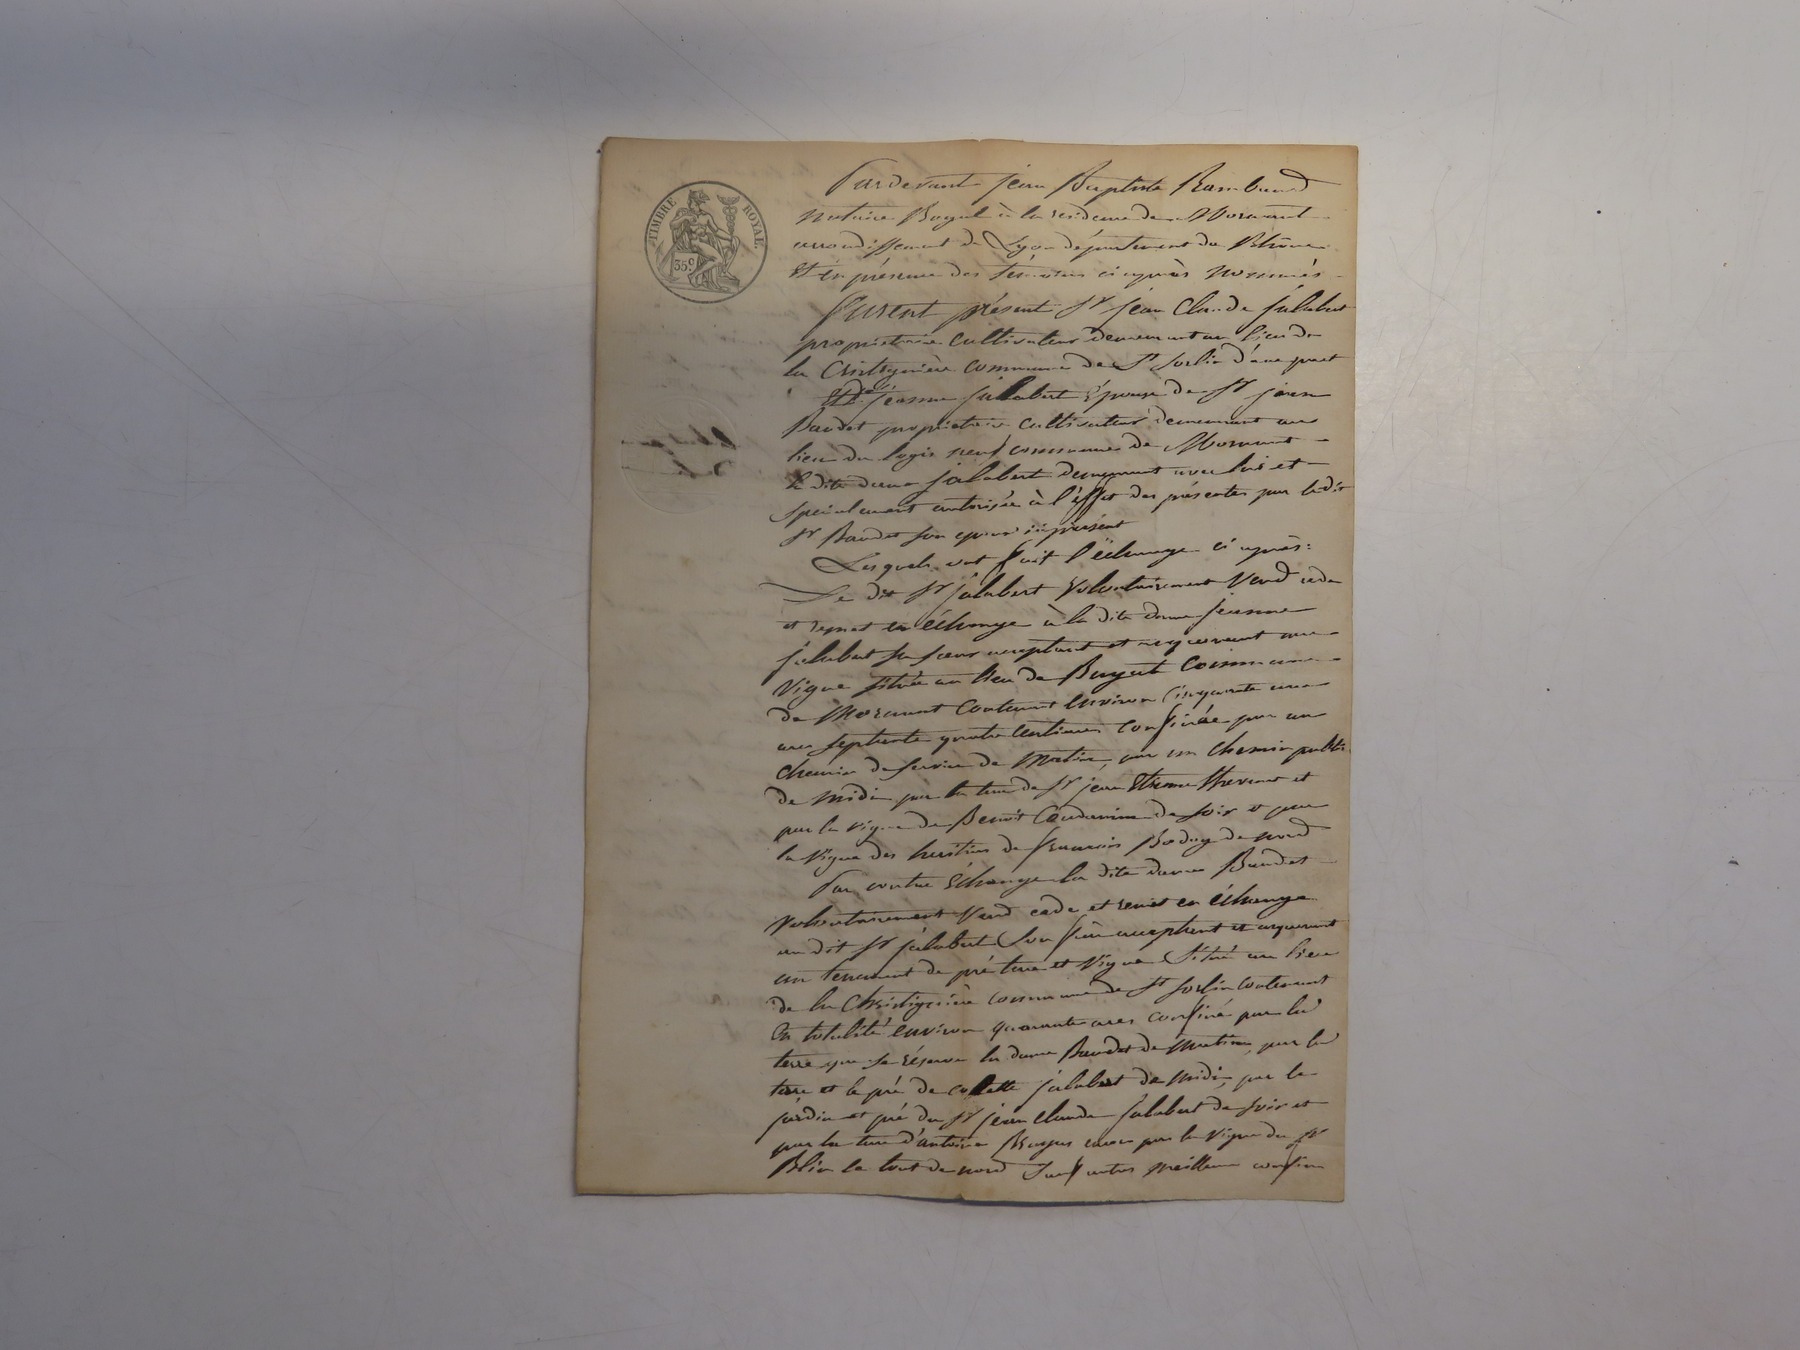 TIMBRE ROYAL.
35c
Pardevant jean Baptiste Rambaud
notaire Royal à la residence de Mornant
arrondissement de Lyon département du Rhône
Et en présence des témoins ci après nommés
Furent présent Sr jean Claude jalabert
propriétaire cultivateur demeurant au lieu de
la commune de St Sorlin d'une part
Et De jeanne jalabert épouse de Sr jean
Baudet propriétaire cultivateur demeurant au
lieu du logis neuf commune de Mornant
la dite dame jalabert demeurant avec lui et
spécialement autorisée à l'effet des présentes par le dit
Sr Baudet son epoux ici présent
Lesquels ont fait l'échange ci après:
Le dit Sr jalabert volontairement vend cede
et remet en échange à la dite dame jeanne
jalabert sa sœur acceptant et acquerant une
vigne située au lieu de commune
de Mornant contenant environ cinquante un
ares septante quatre centiares confinée par un
chemin de service de matin, par un chemin public
de midi par la terre de Sr jean Etienne Thevenet et
par la vigne de Benoit de soir et par
la vigne des heritiers de françois de nord
Par contre échange la dite dame Baudet
volontairement vend cede et remet en échange
au dit Sr jalabert son frère acceptant et acquerant
un tenement de pré terre et vigne situé au lieu
de la commune de St Sorlin contenant
en totalité environ quarante ares confiné par la
terre que se réserve la dame Baudet de matin, par la
terre et le pré de jalabert de midi, par le
jardin et pré du Sr jean claude jalabert de soir et
par la terre d'antoine encore par la vigne du Sr
Blin le tout de nord sauf autres meilleurs confins